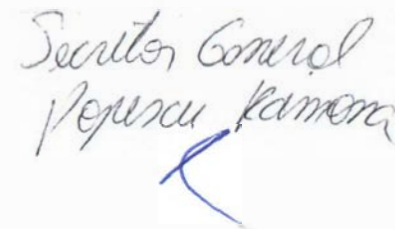 Secretar General
Popescu Ramona